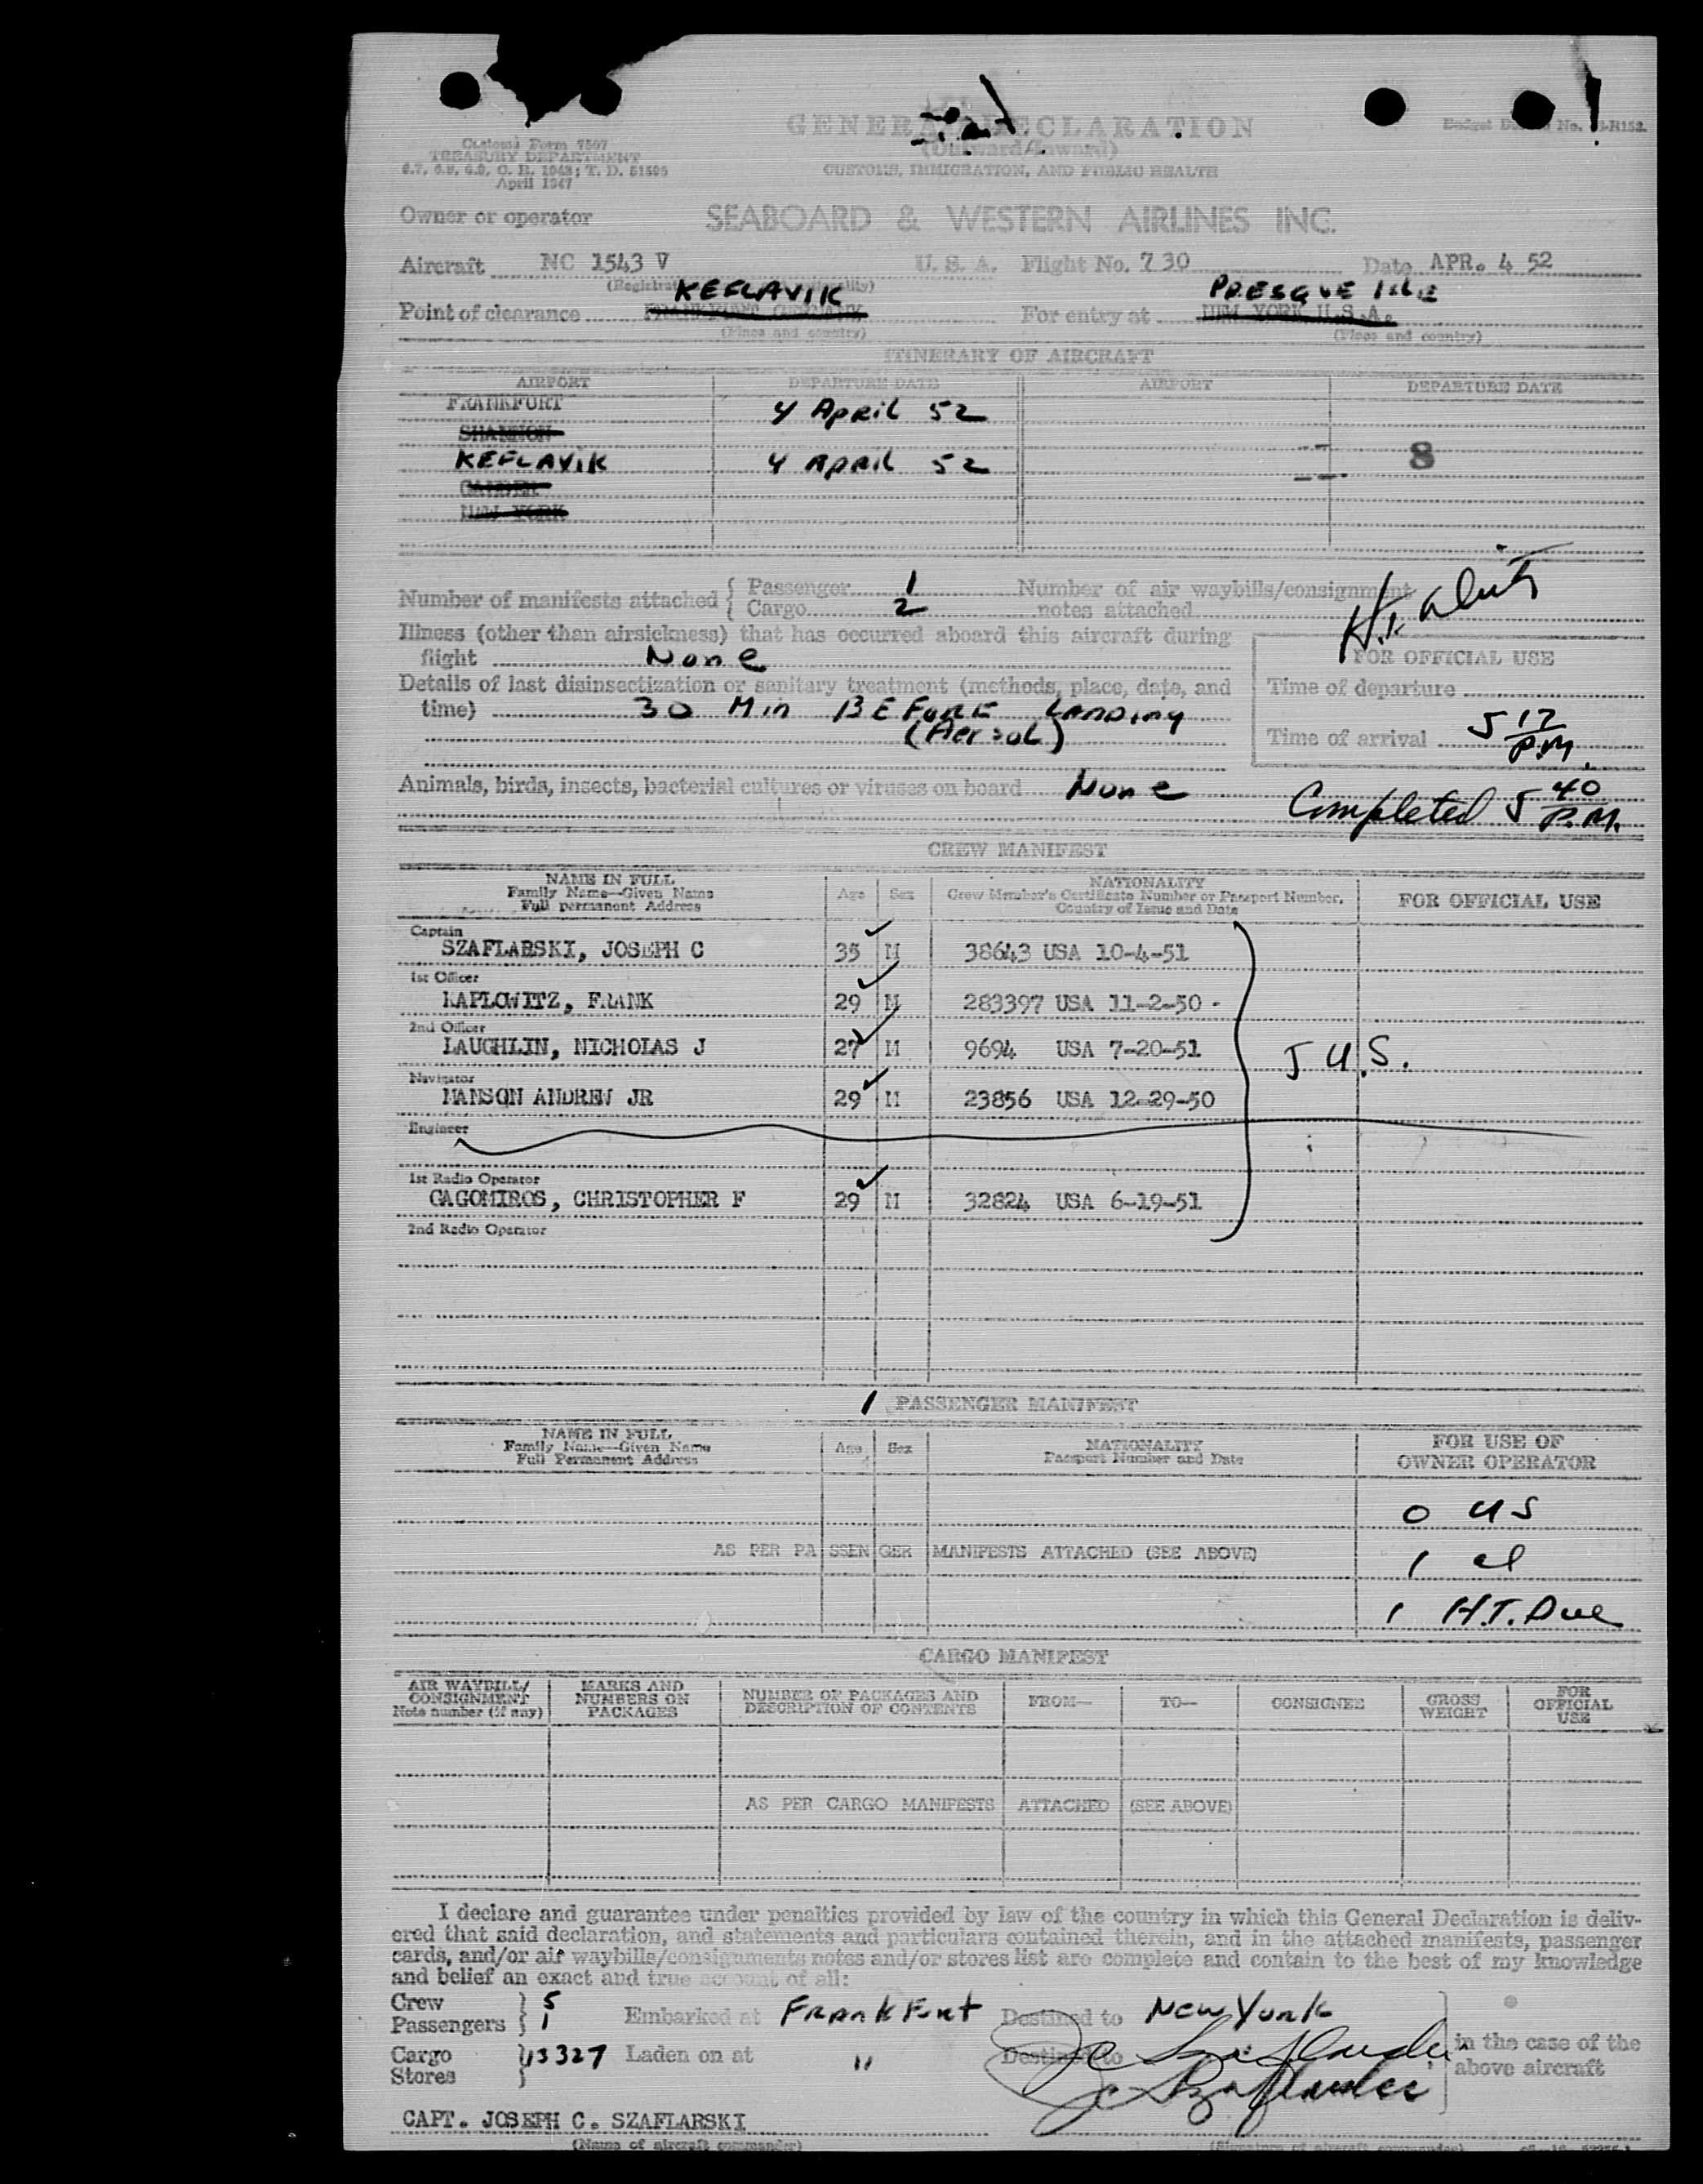 GENERAL DECLARATION
(Outward/Inward)
CUSTOMS, IMMIGRATION, AND PUBLIC HEALTH
Customs Form 7507
TREASURY DEPARTMENT
April 1947
Owner or operator SEABOARD & WESTERN AIRLINES INC.
Aircraft NC 1543 V U. S. A. Flight No. 730 Date APR. 4 52
KEFLAVIK PRESQUE ISLE
Point of clearance For entry at NEW YORK U.S.A.
(Place and country) (Place and country)
ITINERARY OF AIRCRAFT
AIRPORT DEPARTURE DATE AIRPORT DEPARTURE DATE
FRANKFURT 4 April 52
SHANNON
KEFLAVIK 4 April 52 8
GANDER
NEW YORK
Number of manifests attached { Passenger 1 Number of air waybills/consignment
{ Cargo 2 notes attached
Illness (other than airsickness) that has occurred aboard this aircraft during
flight None
FOR OFFICIAL USE
Details of last disinsectization or sanitary treatment (methods, place, date, and
time) 30 Min BEFORE Landing
(Aersol)
Time of departure
Time of arrival 5 17 P.M.
Animals, birds, insects, bacterial cultures or viruses on board None
Completed 5 40 P.M.
CREW MANIFEST
NAME IN FULL
Family Name—Given Name
Full permanent Address
Age Sex
NATIONALITY
Crew Member's Certificate Number or Passport Number.
Country of Issue and Date
FOR OFFICIAL USE
Captain
SZAFLARSKI, JOSEPH C 35 M 38643 USA 10-4-51
1st Officer
KAPLOWITZ, FRANK 29 M 283397 USA 11-2-50
2nd Officer
LAUGHLIN, NICHOLAS J 27 M 9694 USA 7-20-51
5 U.S.
Navigator
MANSON ANDREW JR 29 M 23856 USA 12-29-50
Engineer
1st Radio Operator
GAGOMIROS, CHRISTOPHER F 29 M 32824 USA 6-19-51
2nd Radio Operator
1 PASSENGER MANIFEST
NAME IN FULL
Family Name—Given Name
Full Permanent Address
Age Sex
NATIONALITY
Passport Number and Date
FOR USE OF
OWNER OPERATOR
0 US
AS PER PASSENGER MANIFESTS ATTACHED (SEE ABOVE)
1 al
1 H.T. Due
CARGO MANIFEST
AIR WAYBILL/
CONSIGNMENT
Note number (if any)
MARKS AND
NUMBERS ON
PACKAGES
NUMBER OF PACKAGES AND
DESCRIPTION OF CONTENTS
FROM— TO— CONSIGNEE
GROSS
WEIGHT
FOR
OFFICIAL
USE
AS PER CARGO MANIFESTS ATTACHED (SEE ABOVE)
I declare and guarantee under penalties provided by law of the country in which this General Declaration is deliv-
ered that said declaration, and statements and particulars contained therein, and in the attached manifests, passenger
cards, and/or air waybills/consignments notes and/or stores list are complete and contain to the best of my knowledge
and belief an exact and true account of all:
Crew 5
Passengers 1 Embarked at Frankfurt Destined to New York
Cargo 13327 Laden on at " Destined to
Stores
in the case of the
above aircraft
CAPT. JOSEPH C. SZAFLARSKI
(Name of aircraft commander) (Signature of aircraft commander)